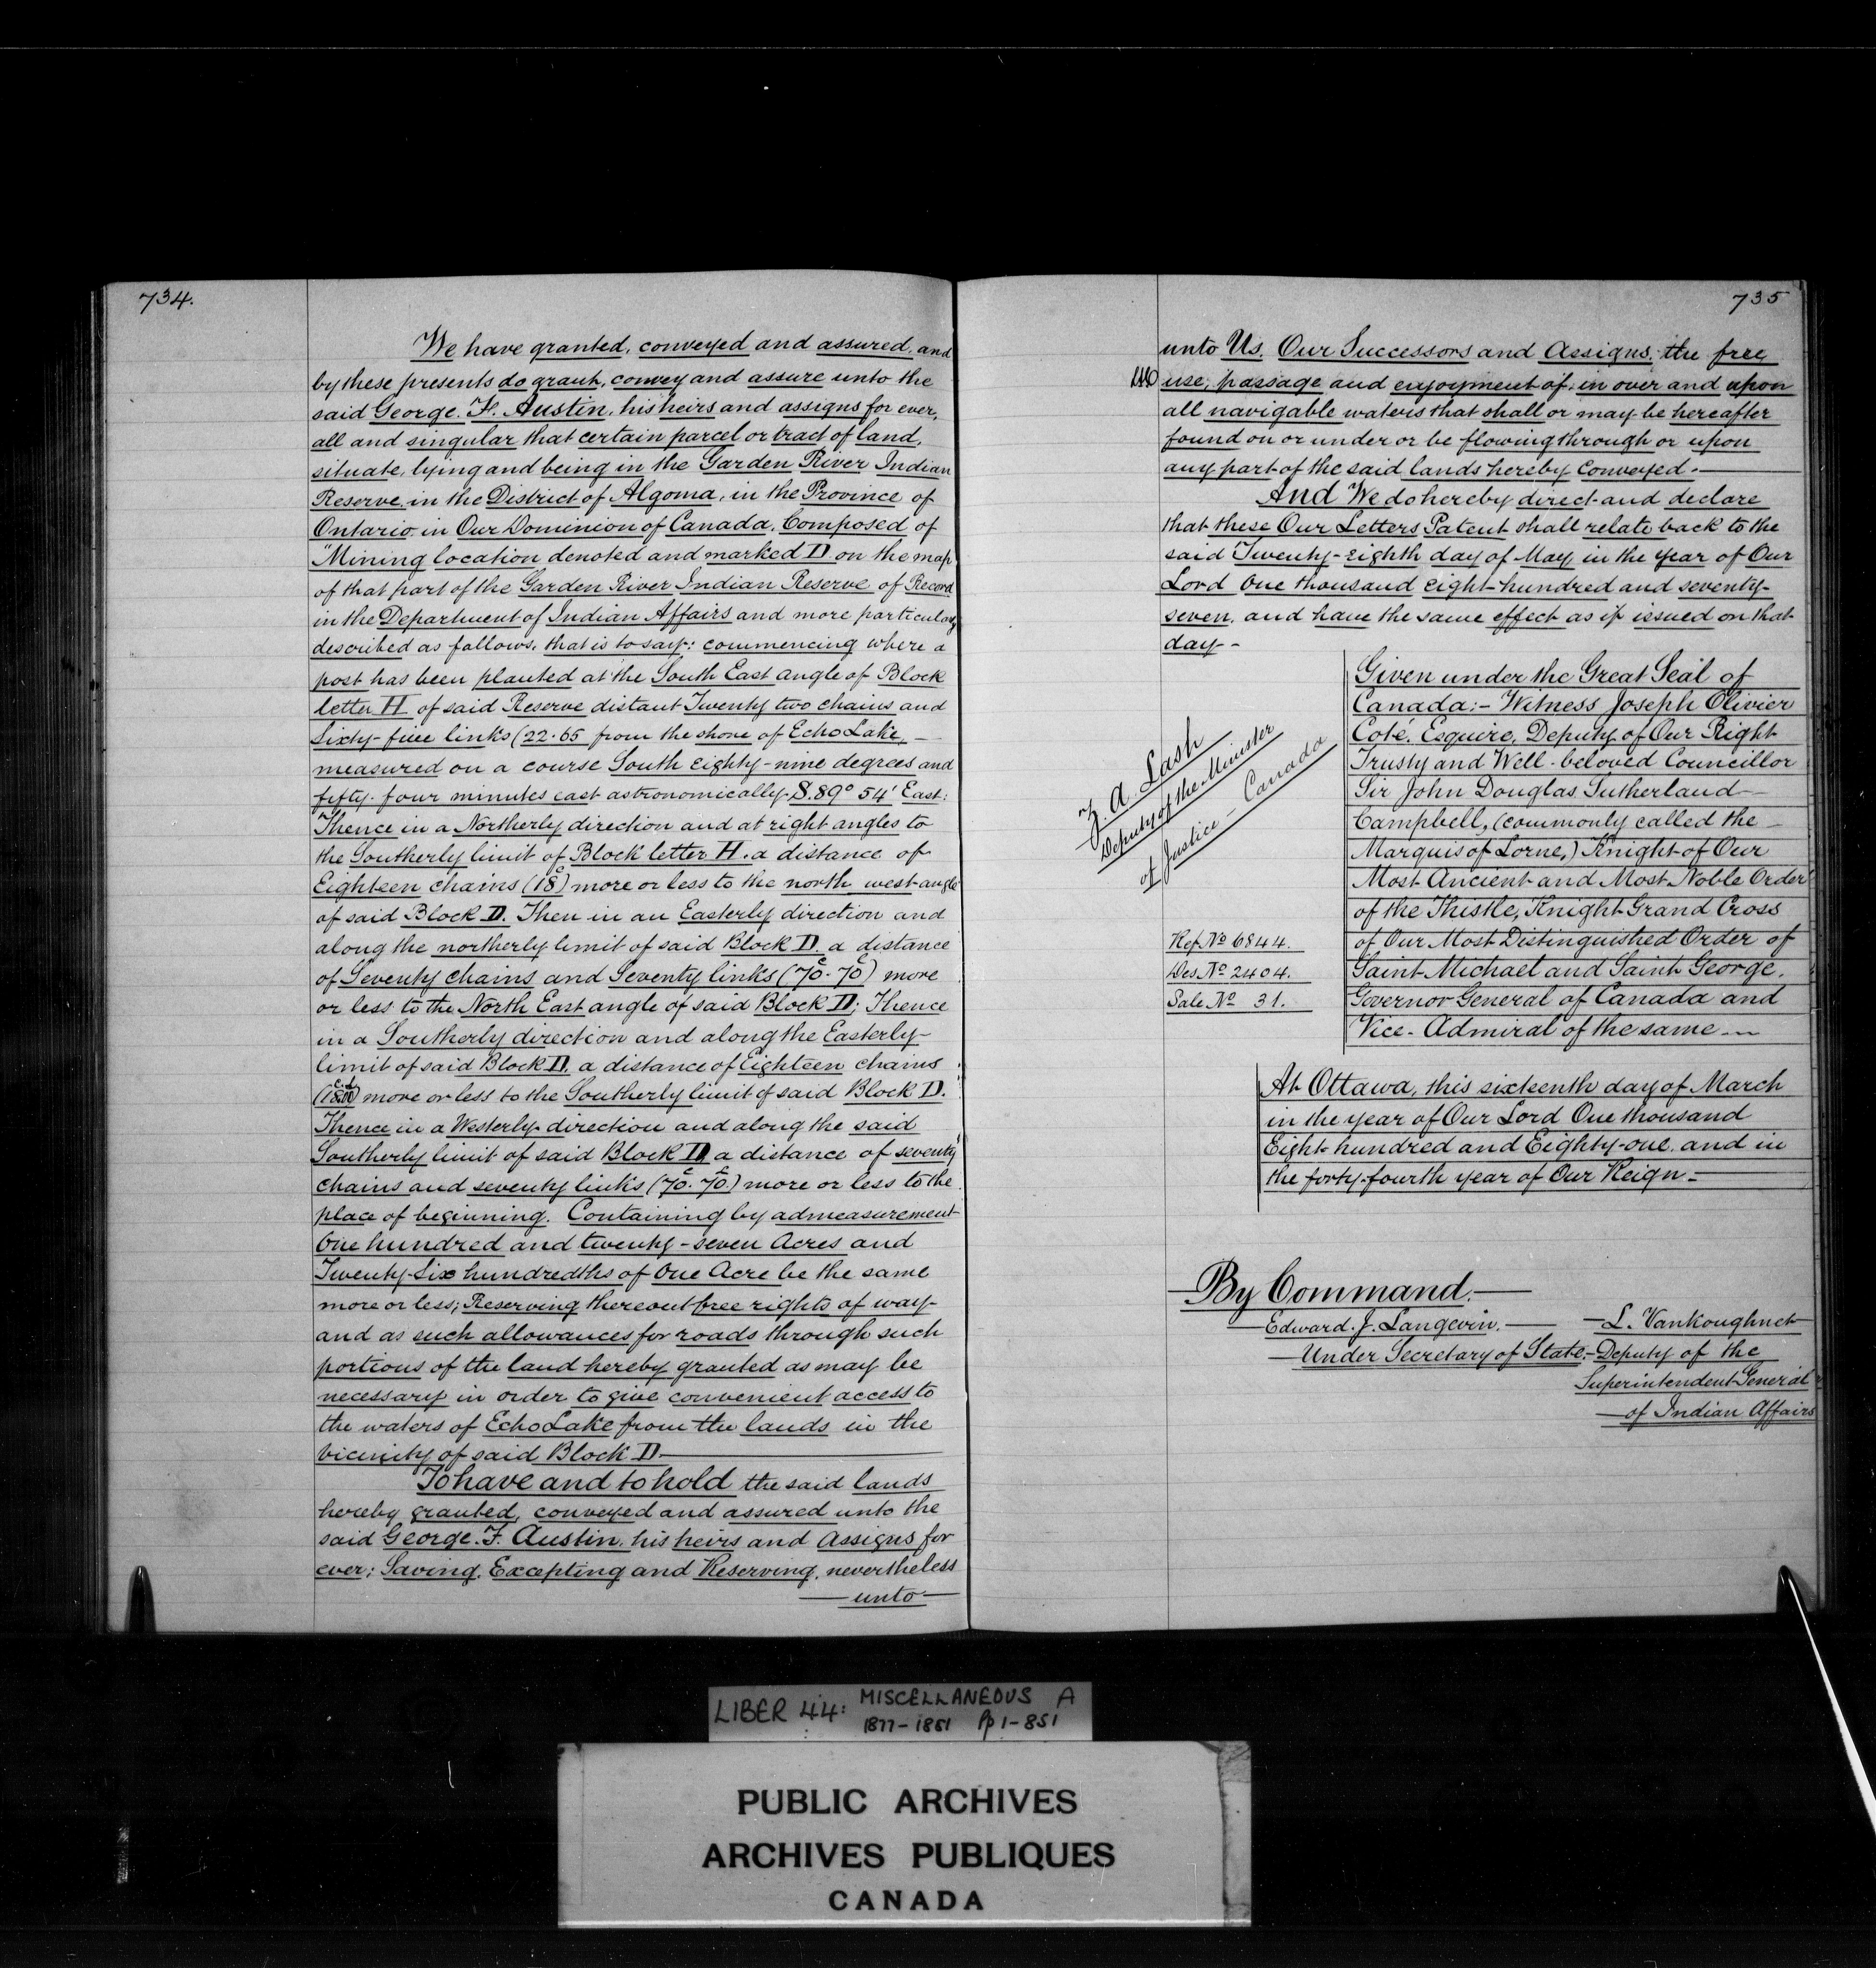 734.
We have granted, conveyed and assured, and
by these presents do grant, convey and assure unto the
said George. F. Austin, his heirs and assigns for ever,
all and singular that certain parcel or tract of land,
situate, lying and being in the Garden River Indian
Reserve in the District of Algoma, in the Province of
Ontario in Our Dominion of Canada, Composed of
"Mining location denoted and marked D on the map
of that part of the Garden River Indian Reserve of Record
in the Department of Indian Affairs and more particularly
described as follows, that is to say: commencing where a
post has been planted at the South East angle of Block
letter H of said Reserve distant Twenty two chains and
Sixty-five links (22.65 from the shore of Echo Lake, —
measured on a course South eighty-nine degrees and
fifty-four minutes east astronomically S.89° 54' East:
Thence in a Northerly direction and at right angles to
the Southerly limit of Block letter H. a distance of
Eighteen chains (18c) more or less to the north west angle
of said Block D. Then in an Easterly direction and
along the northerly limit of said Block D. a distance
of Seventy chains and Seventy links (70.70) more
or less to the North East angle of said Block D; Thence
in a Southerly direction and along the Easterly-
limit of said Block D. a distance of Eighteen chains
(18.00) more or less to the Southerly limit of said Block D.
Thence in a Westerly direction and along the said
Southerly limit of said Block D, a distance of seventy
chains and seventy links (70.70.) more or less to the
place of beginning. Containing by admeasurement
One hundred and twenty-seven Acres and
Twenty-Six hundredths of One Acre be the same
more or less; Reserving thereout free rights of way-
and as such allowances for roads through such
portions of the land hereby granted as may be
necessary in order to give convenient access to
the waters of Echo Lake from the lands in the
vicinity of said Block D —
To have and to hold the said lands
hereby granted, conveyed and assured unto the
said George. F. Austin, his heirs and Assigns for
ever; Saving, Excepting and Reserving, nevertheless
— unto —
735
unto Us, Our Successors and Assigns, the free
use, passage and enjoyment of, in over and upon
all navigable waters that shall or may be hereafter
found on or under or be flowing through or upon
any part of the said lands hereby conveyed. —
And We do hereby direct and declare
that these Our Letters Patent shall relate back to the
said Twenty-eighth day of May, in the year of Our
Lord One thousand eight-hundred and seventy-
seven, and have the same effect as if issued on that
day -
Z. A. Lash
Deputy of the Minister
of Justice - Canada
Ref. No 6844.
Des. No 2404.
Sale No 31.
Given under the Great Seal of
Canada:- Witness Joseph Olivier
Coté. Esquire, Deputy of Our Right
Trusty and Well-beloved Councillor
Sir John Douglas Sutherland —
Campbell, (commonly called the —
Marquis of Lorne,) Knight of Our
Most Ancient and Most Noble Order
of the Thistle, Knight Grand Cross
of Our Most Distinguished Order of
Saint Michael and Saint George.
Governor General of Canada and
Vice-Admiral of the same —
At Ottawa, this sixteenth day of March
in the year of Our Lord One thousand
Eight-hundred and Eighty-one, and in
the forty-fourth year of Our Reign -
By Command. —
Edward. J. Langevin. —
— Under Secretary of State. -
— L. Vankoughnet
Deputy of the
Superintendent General
— of Indian Affairs
LIBER 44: MISCELLANEOUS A
1877-1881 Pp 1-851
PUBLIC ARCHIVES
ARCHIVES PUBLIQUES
CANADA